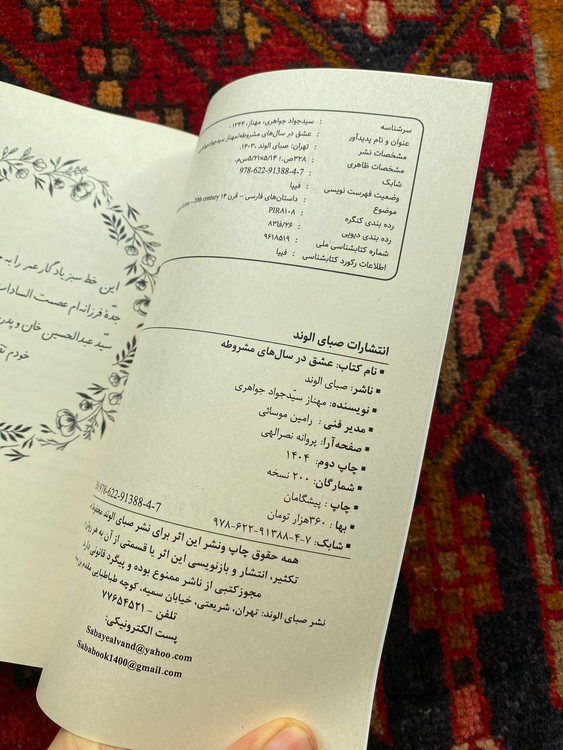 سرشناسه : سیدجواد جواهری، مهناز، ۱۳۴۴ .
عنوان و نام پدیدآور : عشق در سال‌های مشروطه/مهناز سیدجواد جواهری
مشخصات نشر : تهران: صبای الوند ،۱۴۰۳.
مشخصات ظاهری : ۳۲۸ص.؛ ۱۴/۵×۲۱/۵س‌م.
شابک : 978-622-91388-4-7
وضعیت فهرست نویسی : فیپا
موضوع : داستان‌های فارسی -- قرن ۱۴ 20th century --
رده بندی کنگره : PIR۸۱۰۸
رده بندی دیویی : ۸۳فا/۲۶
شماره کتابشناسی ملی : ۹۶۱۸۵۱۹
اطلاعات رکورد کتابشناسی : فیپا
انتشارات صبای الوند
▪ نام کتاب: عشق در سال‌های مشروطه
▪ ناشر: صبای الوند
▪ نویسنده: مهناز سیّدجواد جواهری
▪ مدیر فنی : رامین موسائی
▪ صفحه‌آرا: پروانه نصرالهی
▪ چاپ دوم: ۱۴۰۴
▪ شمارگان: ۲۰۰ نسخه
▪ چاپ : پیشگامان
▪ بها : ۳۶۰هزار تومان
▪ شابک: ۷-۴-۹۱۳۸۸-۶۲۲-۹۷۸
978-622-91388-4-7
همه حقوق چاپ ونشر این اثر برای نشر صبای الوند
تکثیر، انتشار و بازنویسی این اثر یا قسمتی از آن به هر
مجوزکتبی از ناشر ممنوع بوده و پیگرد قانونی
نشر صبای الوند: تهران، شریعتی، خیابان سمیه، کوچه طباطبایی مقدم
تلفن – ۷۷۶۵۴۵۲۱
پست الکترونیکی:
Sabayealvand@yahoo.com
Sababook1400@gmail.com
این خط سبز یادگار عمر را به
جدّهٔ فرزانه‌ام عصمت السادات
سیّد عبدالحسین خان و پدر
خودم